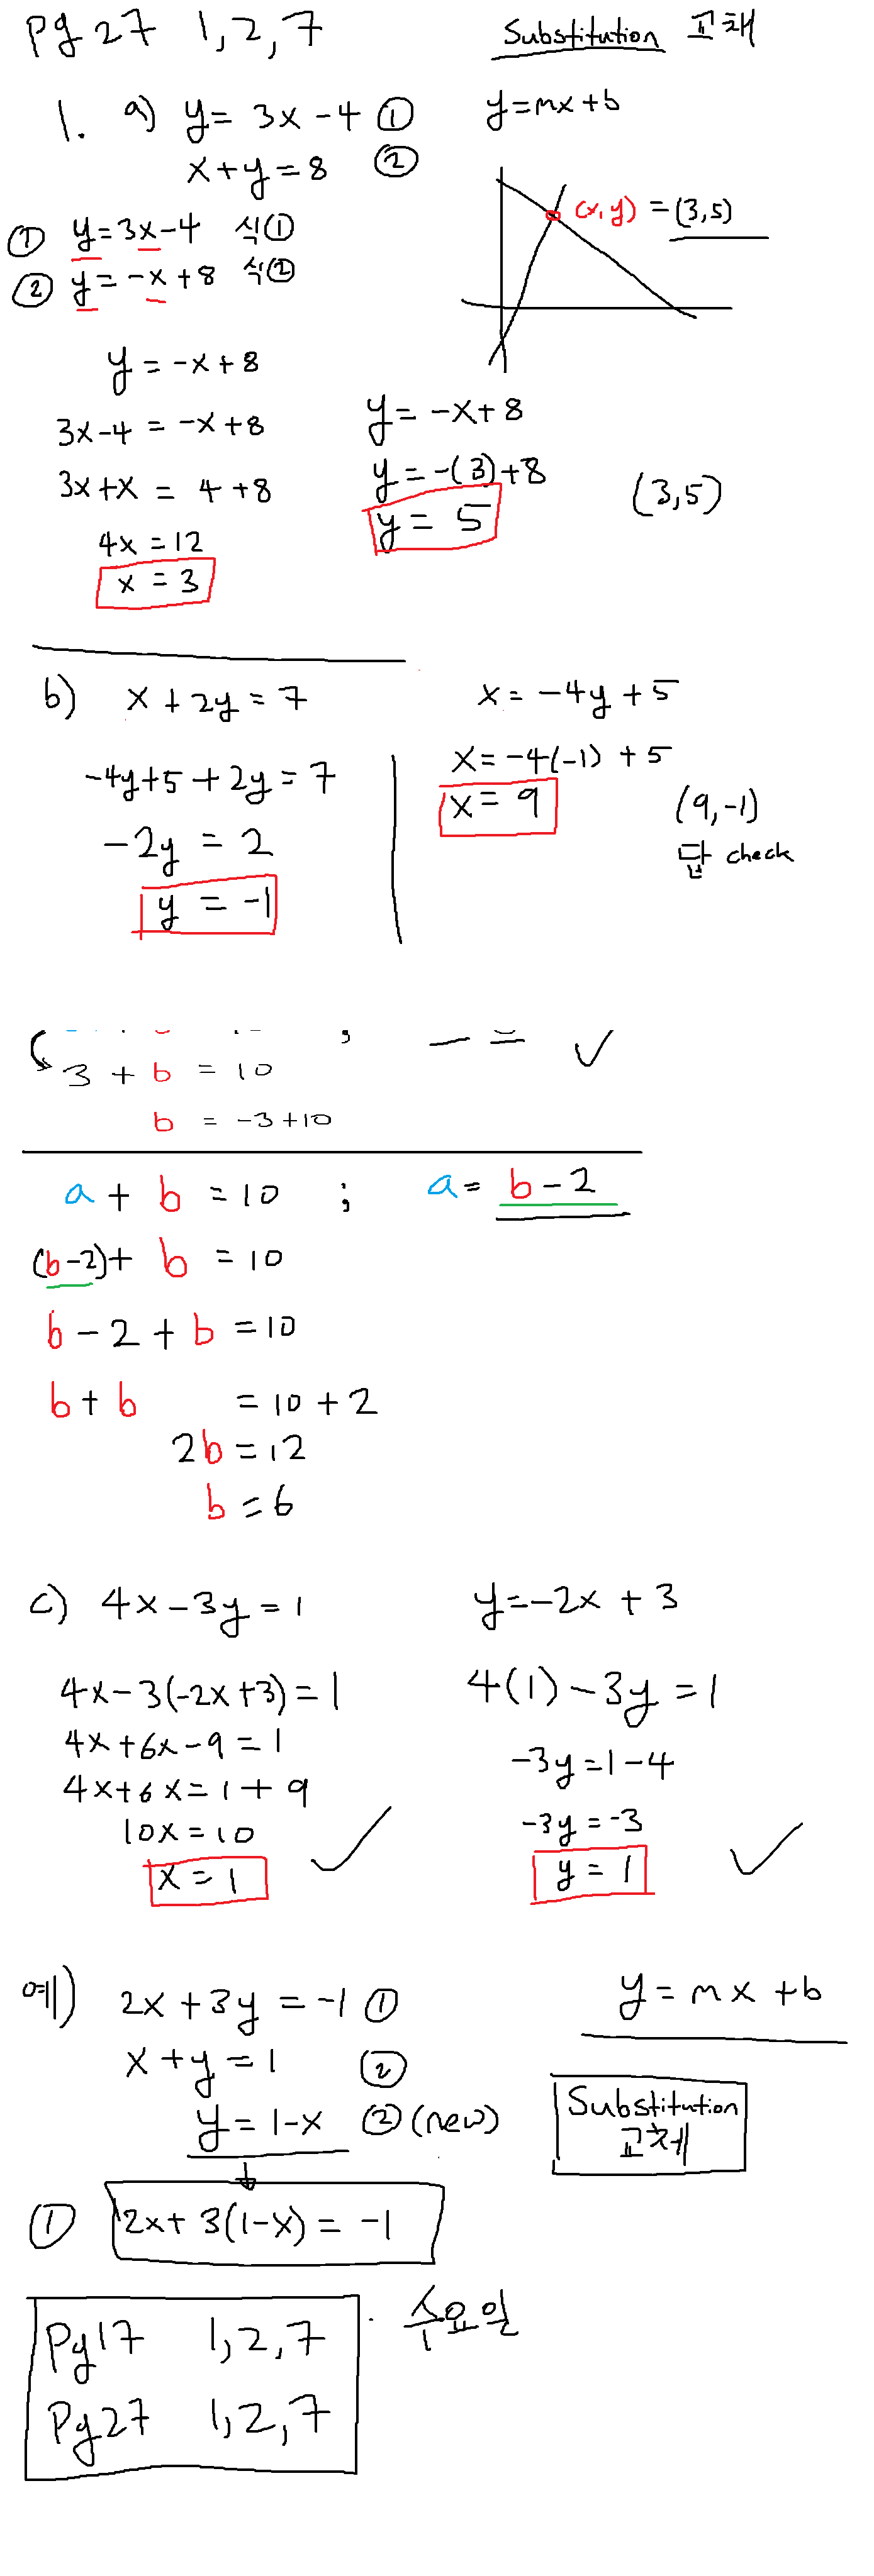 Pg 27 1, 2, 7
Substitution 교체
1. a) y = 3x - 4 ①
y = mx + b
x + y = 8 ②
① y = 3x - 4 식①
(x, y) = (3, 5)
② y = -x + 8 식②
y = -x + 8
3x - 4 = -x + 8
3x + x = 4 + 8
4x = 12
x = 3
y = -x + 8
y = -(3) + 8
y = 5
(3, 5)
b) x + 2y = 7
-4y + 5 + 2y = 7
-2y = 2
y = -1
x = -4y + 5
x = -4(-1) + 5
x = 9
(9, -1)
답 check
3 + b = 10
b = -3 + 10
a + b = 10 ; a = b - 2
(b - 2) + b = 10
b - 2 + b = 10
b + b = 10 + 2
2b = 12
b = 6
c) 4x - 3y = 1
4x - 3(-2x + 3) = 1
4x + 6x - 9 = 1
4x + 6x = 1 + 9
10x = 10
x = 1
y = -2x + 3
4(1) - 3y = 1
-3y = 1 - 4
-3y = -3
y = 1
예) 2x + 3y = -1 ①
x + y = 1 ②
y = 1 - x ② (new)
① 2x + 3(1 - x) = -1
y = mx + b
Substitution
교체
Pg 17 1, 2, 7 수요일
Pg 27 1, 2, 7